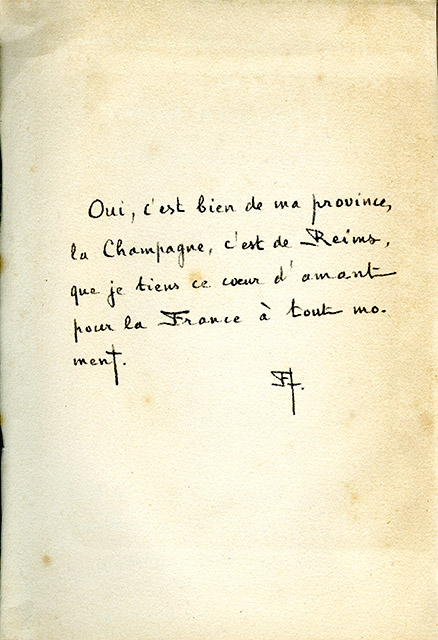 Oui, c'est bien de ma province,
la Champagne, c'est de Reims,
que je tiens ce cœur d'amant
pour la France à tout mo-
ment.